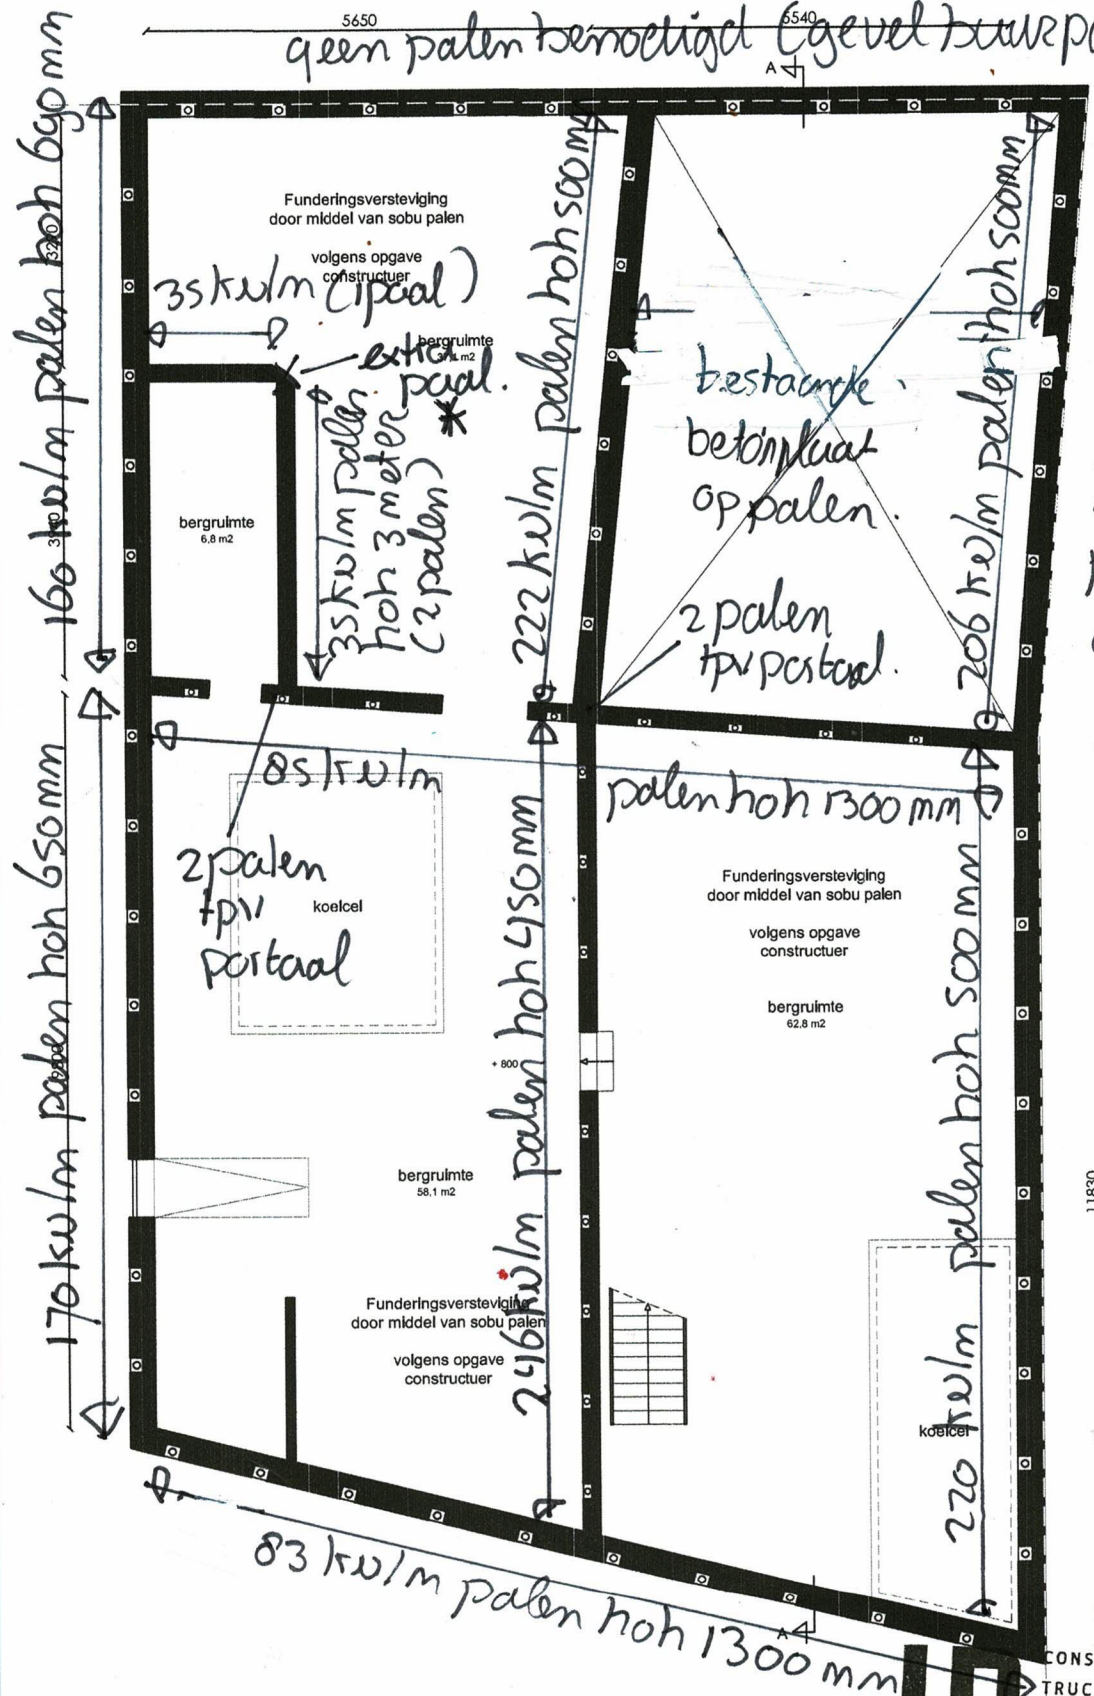 5650
5540
geen palen benodigd (gevel buurp
A
160 kN/m palen hoh 690mm
Funderingsversteviging
door middel van sobu palen
volgens opgave
constructuer
35 kN/m (1 paal)
bergruimte
extra
paal.
*
35 kN/m palen
hoh 3 meter
(2 palen)
bergruimte
6,8 m2
222 kN/m palen hoh 500m
bestaande
betonplaat
op palen.
206 kN/m palen hoh 500mm
2 palen
tpv portaal.
85 kN/m
palen hoh 1300 mm
2 palen
tpv
portaal
koelcel
170 kN/m palen hoh 650mm
246 kN/m palen hoh 450mm
Funderingsversteviging
door middel van sobu palen
volgens opgave
constructuer
bergruimte
62,8 m2
+ 800
bergruimte
58,1 m2
Funderingsversteviging
door middel van sobu palen
volgens opgave
constructuer
220 kN/m palen hoh 500mm
koelcel
11830
83 kN/m palen hoh 1300 mm
A
CONS
TRUC